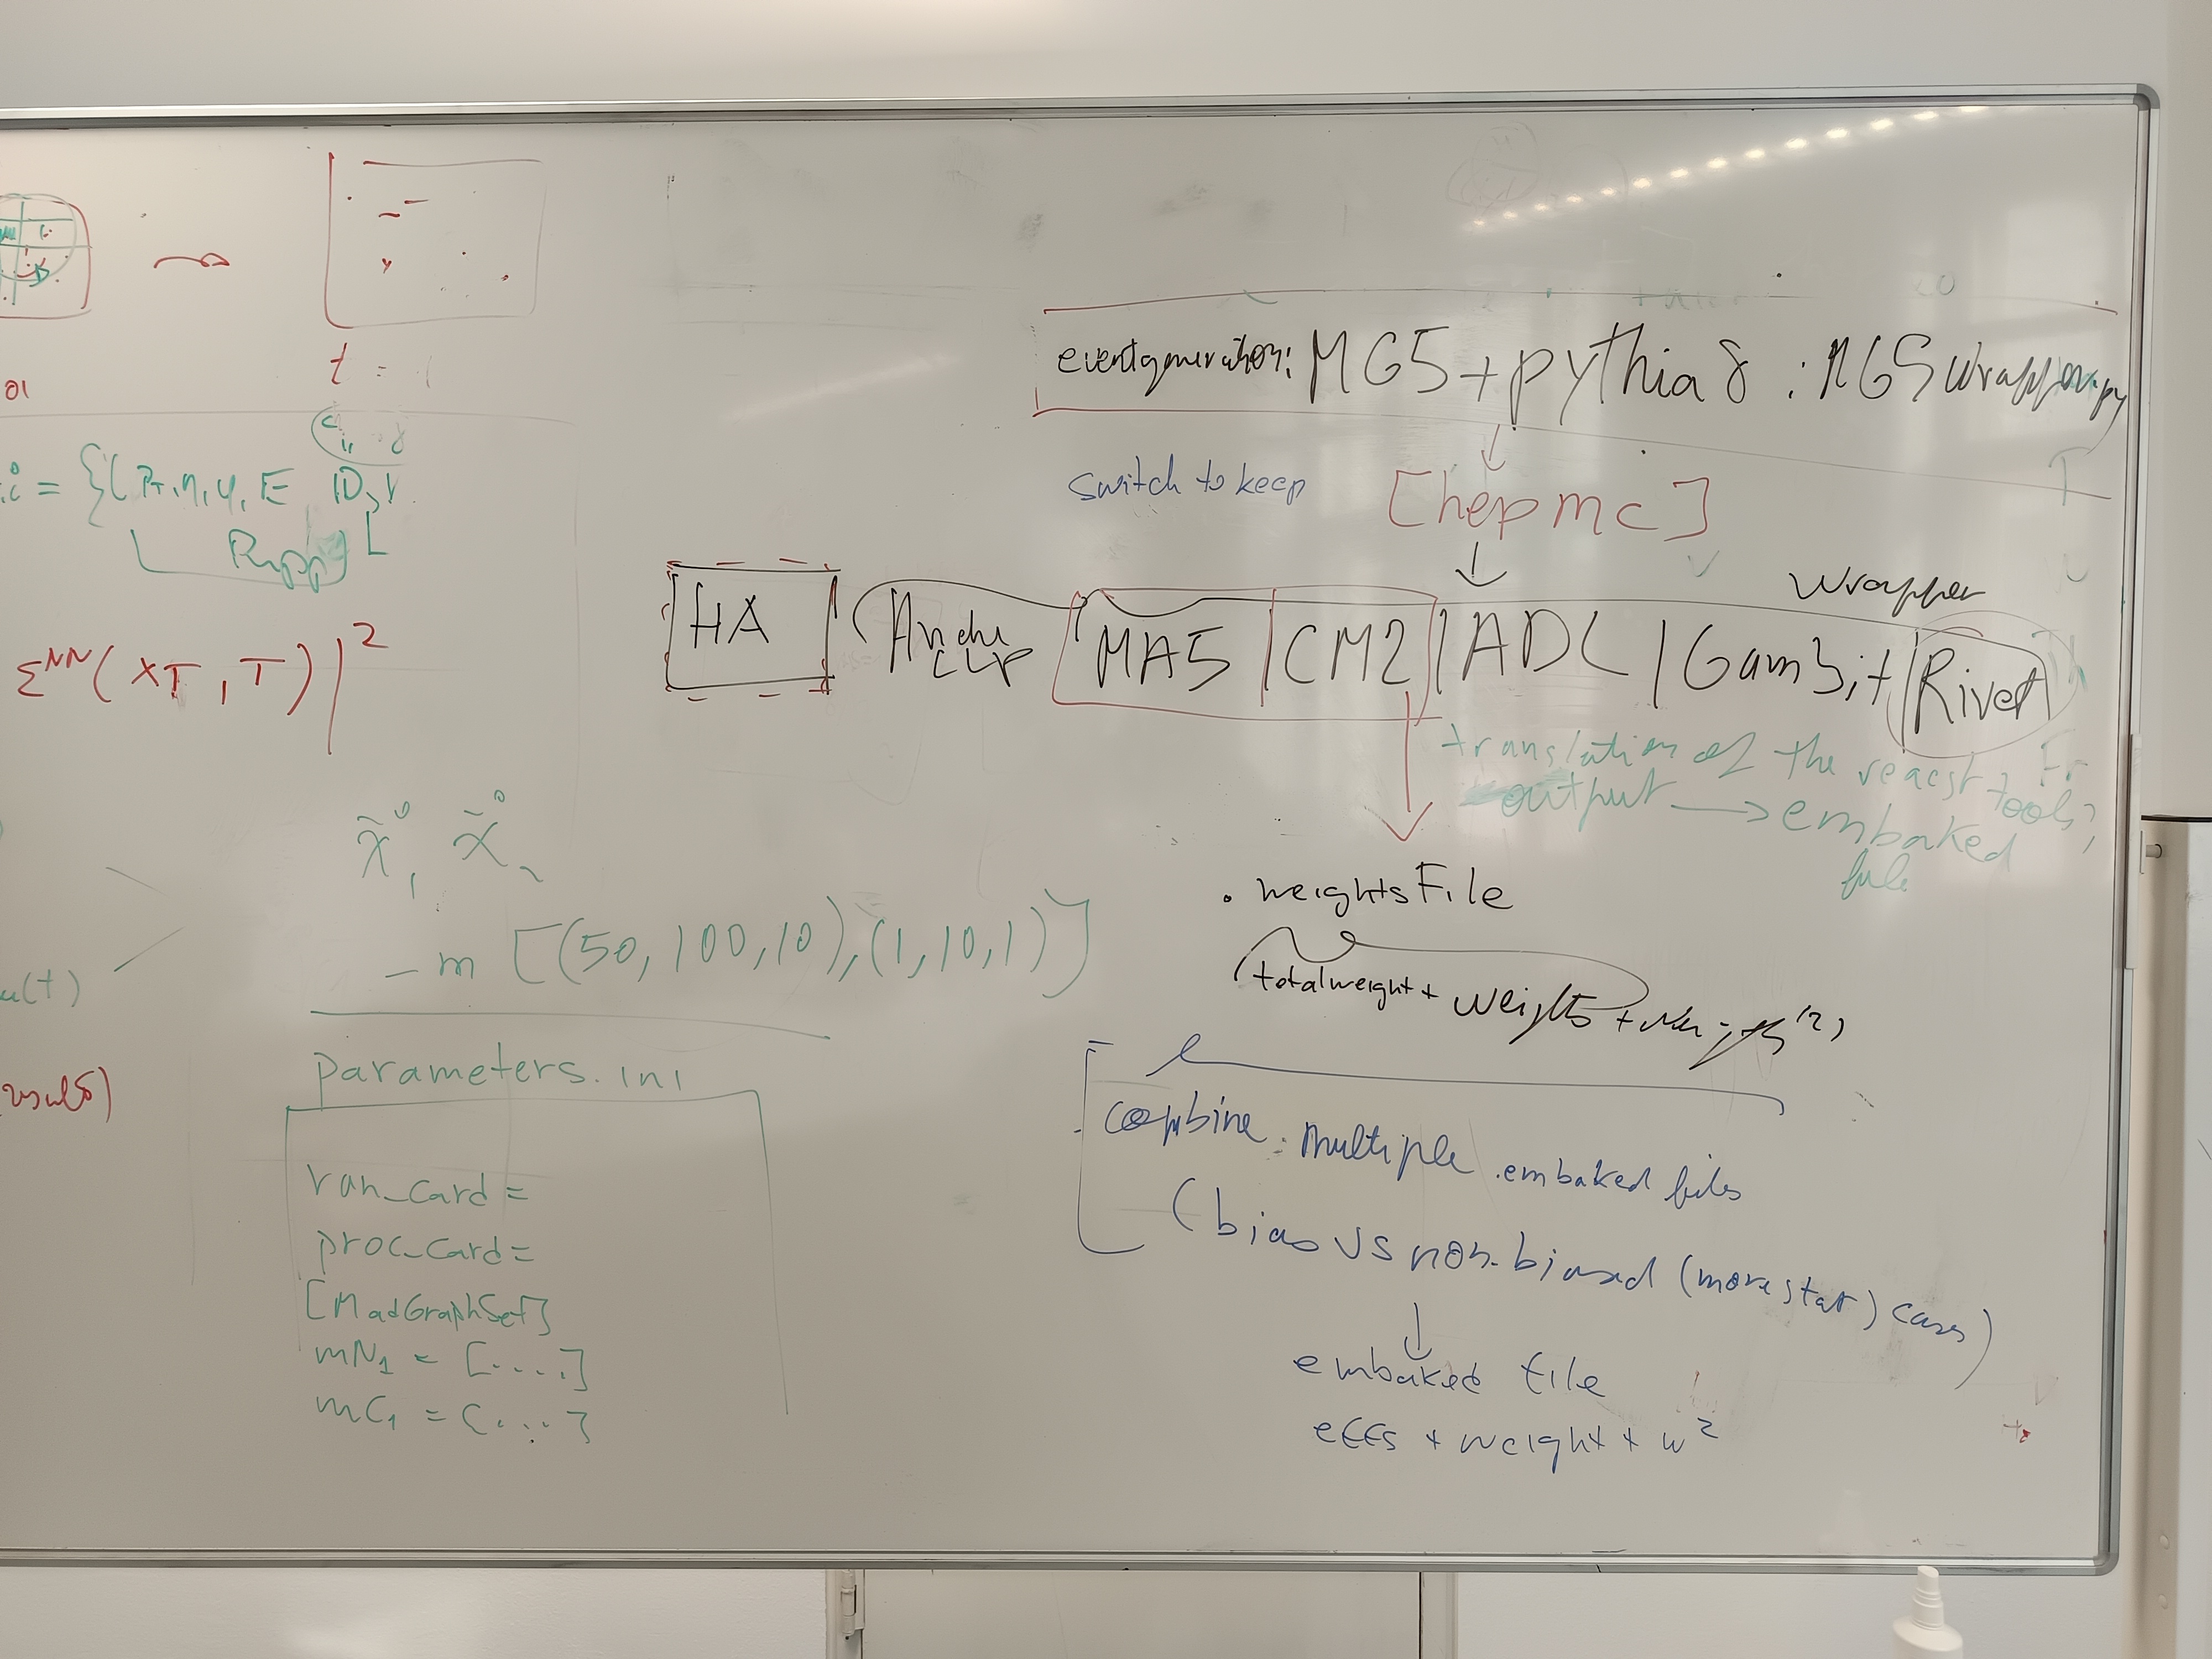 t =
= {( PT, η, φ, E ID,
Σ^NN( XT , T ) |²
χ̃₁⁰ χ̃₂⁰
- m [(50, 100, 10), (1, 10, 1)]
parameters.ini
run_card =
proc_card =
[MadGraphSet]
mN1 = [....]
mC1 = [....]
event generation: MG5 + pythia 8 : MG5wrapper.py
switch to keep [hepmc]
wrapper
HA
MA5 | CM2 | ADL | Gambit | Rivet
translation of the recast tools;
output → embaked
file
. weightsFile
total weight + weights +
combine multiple .embaked files
(bias vs non-biased (more stat) cases)
embaked file
effs + weight + w²